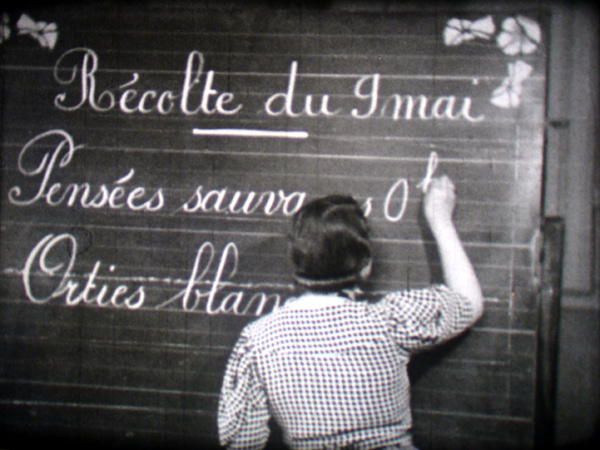 Récolte du 9 mai
Pensées sauva s 0
Orties blan